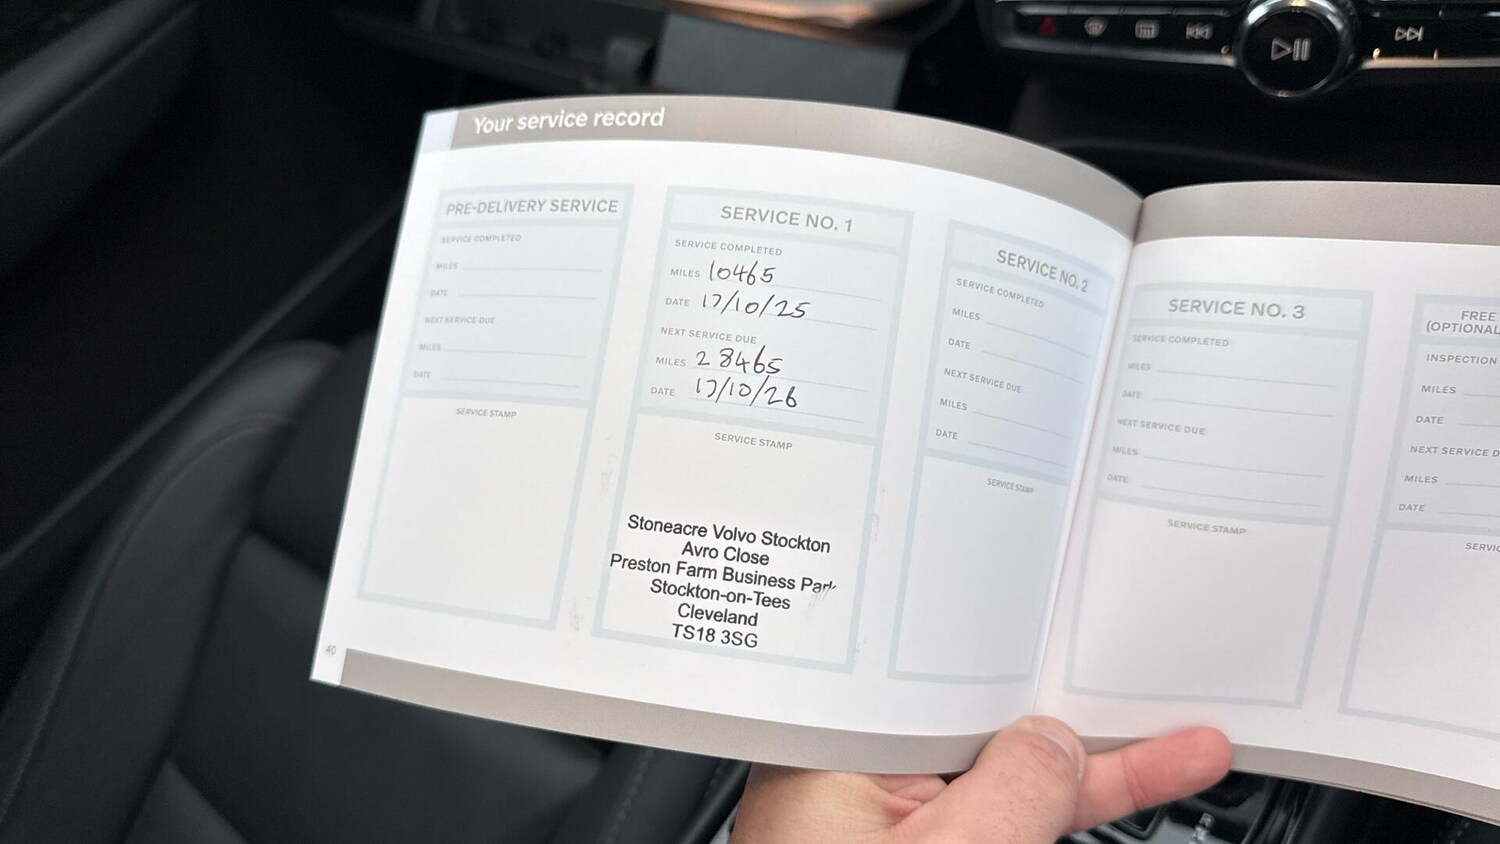 Your service record
PRE-DELIVERY SERVICE
SERVICE COMPLETED
MILES
DATE
NEXT SERVICE DUE
MILES
DATE
SERVICE STAMP
SERVICE NO. 1
SERVICE COMPLETED
MILES 10465
DATE 17/10/25
NEXT SERVICE DUE
MILES 28465
DATE 17/10/26
SERVICE STAMP
Stoneacre Volvo Stockton
Avro Close
Preston Farm Business Park
Stockton-on-Tees
Cleveland
TS18 3SG
SERVICE NO. 2
SERVICE COMPLETED
MILES
DATE
NEXT SERVICE DUE
MILES
DATE
SERVICE STAMP
SERVICE NO. 3
SERVICE COMPLETED
MILES
DATE
NEXT SERVICE DUE
MILES
DATE
SERVICE STAMP
FREE
(OPTIONAL
INSPECTION
MILES
DATE
NEXT SERVICE D
MILES
DATE
SERVIC
40